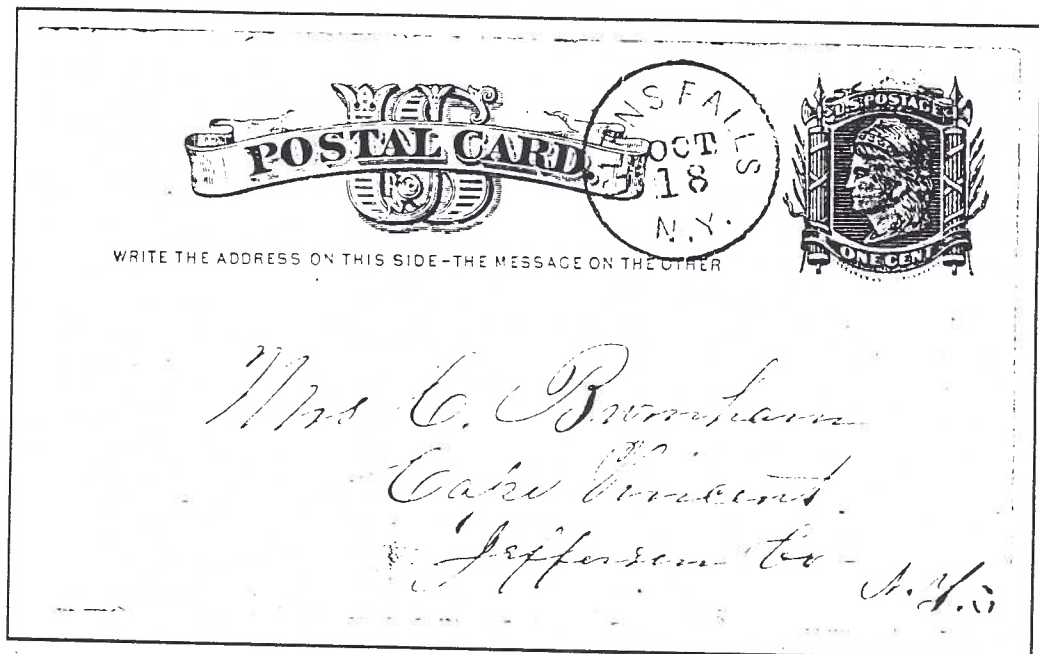 US
POSTAL CARD.
NS FALLS
OCT
18
N.Y.
U.S. POSTAGE
ONE CENT
WRITE THE ADDRESS ON THIS SIDE-THE MESSAGE ON THE OTHER
Mrs C.
Cape Vincent
Jefferson Co
N.Y.